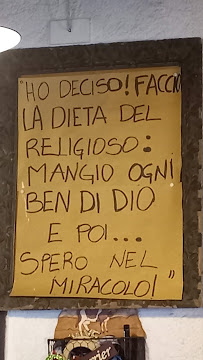 "HO DECISO! FACCIO
LA DIETA DEL
RELIGIOSO:
MANGIO OGNI
BEN DI DIO
E POI...
SPERO NEL
MIRACOLO!"